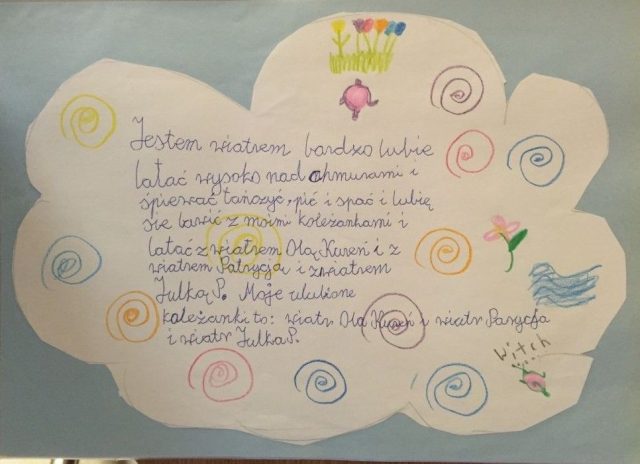 Jestem wiatrem bardzo lubie
latać wysoko nad chmurami i
śpiewać tańczyć, pić i spać i lubię
się bawić z moimi koleżankami i
latać z wiatrem Olą Kureń i z
wiatrem Patrycją i z wiatrem
Julką P. Moje ulubione
koleżanki to: wiatr Ola Kureń i wiatr Patrycja
i wiatr Julka P.
Witch